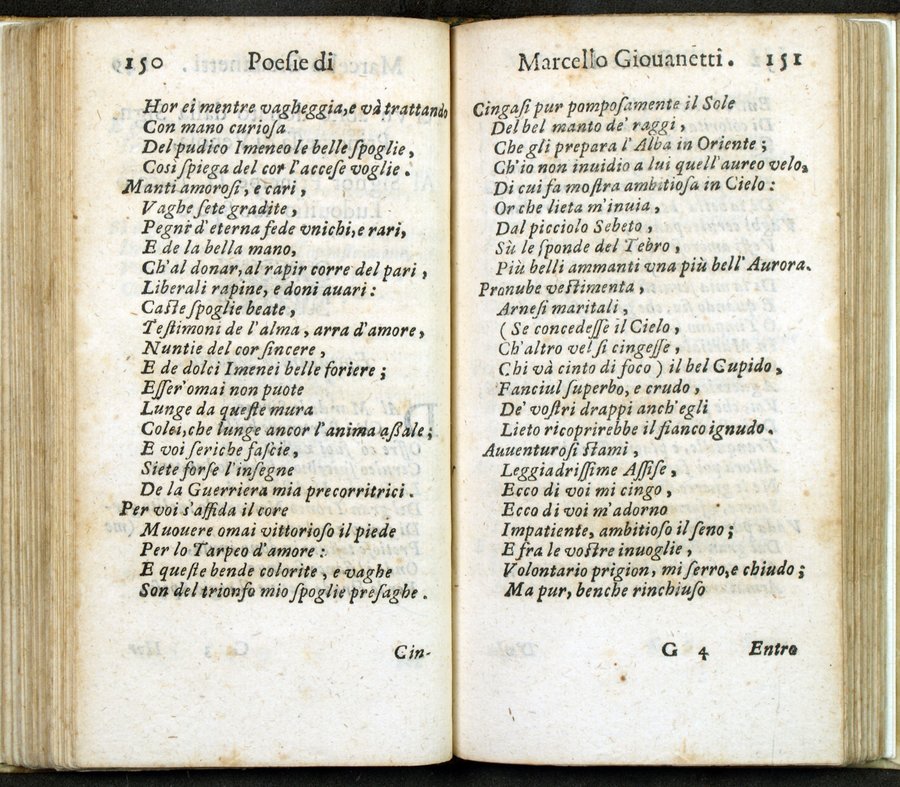 150 Poesie di
Hor ei mentre vagheggia, e và trattando
Con mano curiosa
Del pudico Imeneo le belle ſpoglie,
Cosi ſpiega del cor l'acceſe voglie.
Manti amorosi, e cari,
Vaghe ſete gradite,
Pegni d'eterna fede vnichi, e rari,
E de la bella mano,
Ch'al donar, al rapir corre del pari,
Liberali rapine, e doni auari:
Caſte ſpoglie beate,
Teſtimoni de l'alma, arra d'amore,
Nuntie del cor ſincere,
E de dolci Imenei belle foriere;
Eſſer'omai non puote
Lunge da queſte mura
Colei, che lunge ancor l'anima aſſale;
E voi ſeriche faſcie,
Siete forſe l'inſegne
De la Guerriera mia precorritrici.
Per voi s'affida il core
Muouere omai vittorioſo il piede
Per lo Tarpeo d'amore:
E queſte bende colorite, e vaghe
Son del trionfo mio ſpoglie preſaghe.
Cin-
Marcello Giouanetti. 151
Cingaſi pur pompoſamente il Sole
Del bel manto de' raggi,
Che gli prepara l'Alba in Oriente;
Ch'io non inuidio a lui quell'aureo velo,
Di cui fa moſtra ambitioſa in Cielo:
Or che lieta m'inuia,
Dal picciolo Sebeto,
Sù le ſponde del Tebro,
Più belli ammanti vna più bell'Aurora.
Pronube veſtimenta,
Arneſi maritali,
(Se concedeſſe il Cielo,
Ch'altro vel ſi cingeſſe,
Chi và cinto di foco) il bel Cupido,
Fanciul ſuperbo, e crudo,
De' voſtri drappi anch'egli
Lieto ricoprirebbe il fianco ignudo.
Auuenturoſi ſtami,
Leggiadriſſime Aſſiſe,
Ecco di voi mi cingo,
Ecco di voi m'adorno
Impatiente, ambitioſo il ſeno;
E fra le voſtre inuoglie,
Volontario prigion, mi ſerro, e chiudo;
Ma pur, benche rinchiuſo
G 4 Entro